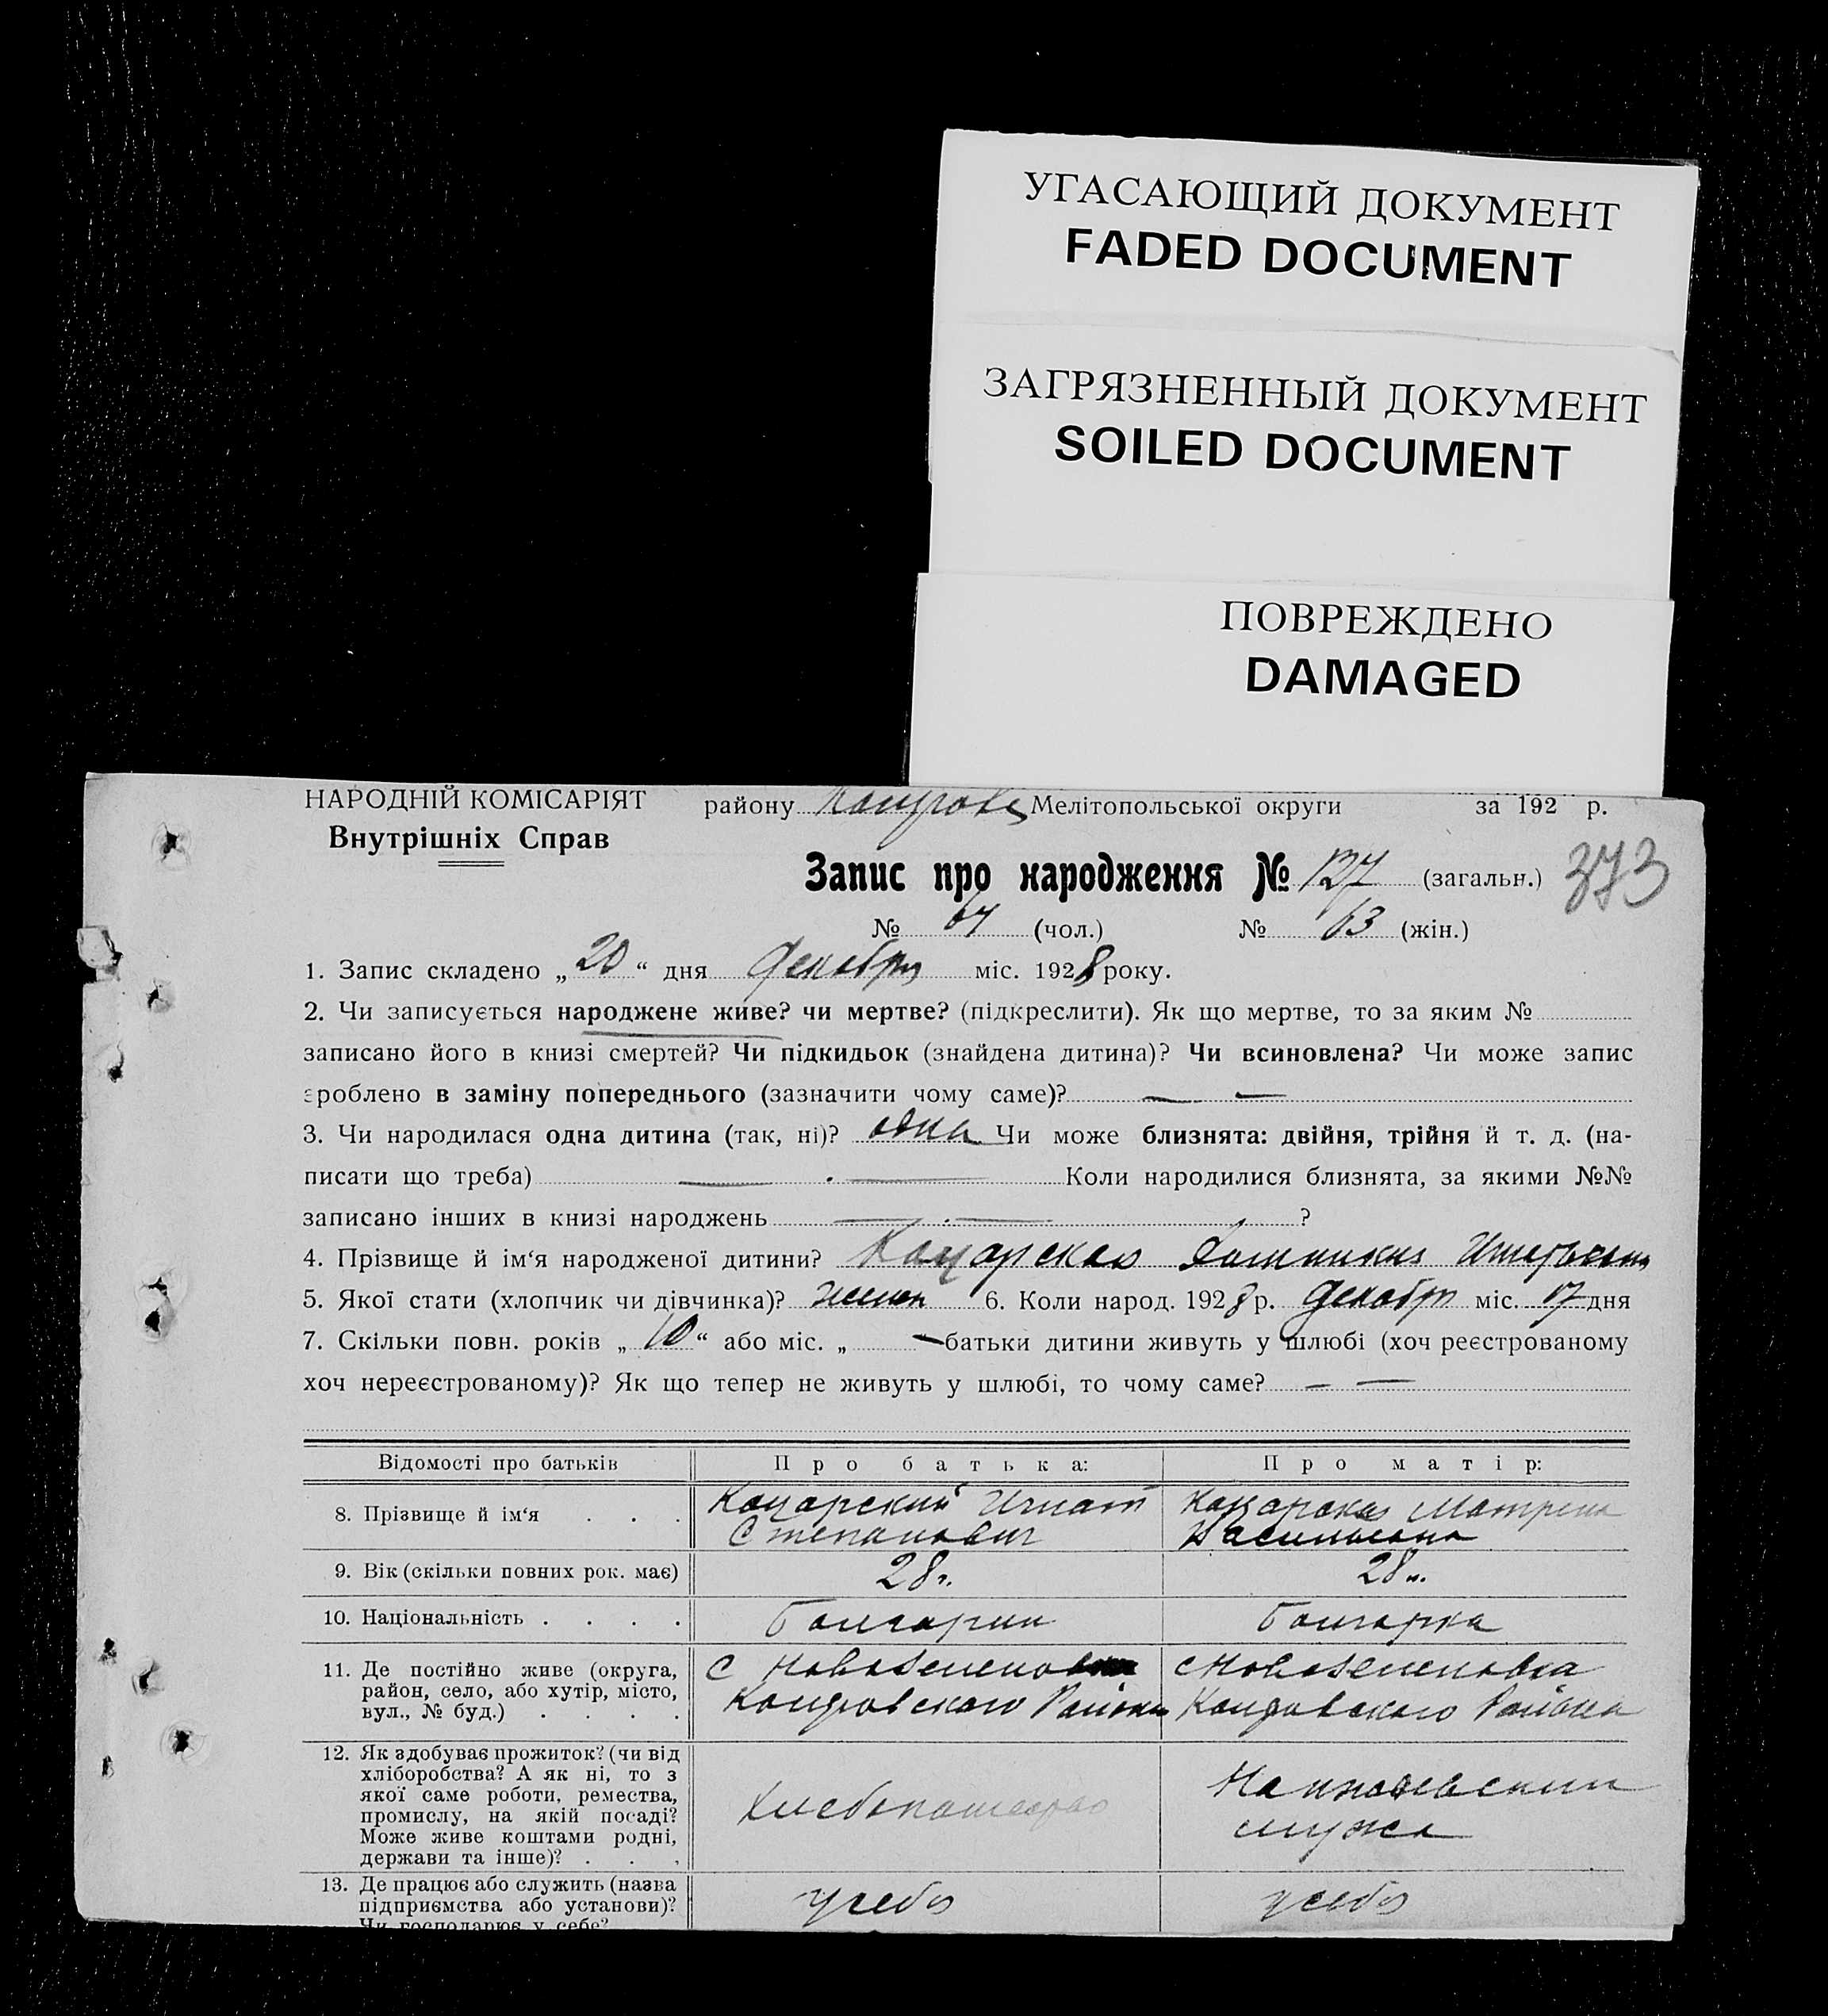 УГАСАЮЩИЙ ДОКУМЕНТ
FADED DOCUMENT
ЗАГРЯЗНЕННЫЙ ДОКУМЕНТ
SOILED DOCUMENT
ПОВРЕЖДЕНО
DAMAGED
НАРОДНІЙ КОМІСАРІЯТ
Внутрішніх Справ
району Мелітопольської округи за 192 р.
Запис про народження № 127 (загальн.) 373
№ 64 (чол.) № 63 (жін.)
1. Запис складено „20“ дня Декабря міс. 1928 року.
2. Чи записується народжене живе? чи мертве? (підкреслити). Як що мертве, то за яким №
записано його в книзі смертей? Чи підкидьок (знайдена дитина)? Чи всиновлена? Чи може запис
зроблено в заміну попереднього (зазначити чому саме)? — —
3. Чи народилася одна дитина (так, ні)? одна Чи може близнята: двійня, трійня й т. д. (на-
писати що треба) — — Коли народилися близнята, за якими №№
записано інших в книзі народжень — — ?
4. Прізвище й ім‘я народженої дитини? Кацарская
5. Якої стати (хлопчик чи дівчинка)? женск 6. Коли народ. 1928 р. Декабря міс. 17 дня
7. Скільки повн. років „10“ або міс. „ — батьки дитини живуть у шлюбі (хоч реєстрованому
хоч нереєстрованому)? Як що тепер не живуть у шлюбі, то чому саме? — —
Відомості про батьків Про батька: Про матір:
8. Прізвище й ім‘я . . . Кацарский Игнат Кацарская Матрена
Степанович Васильевна
9. Вік (скільки повних рок. має) 28 г. 28 л.
10. Національність . . . . Болгарин Болгарка
11. Де постійно живе (округа, С Новоалексеевка
район, село, або хутір, місто,
вул., № буд.) . . . . Района Района
12. Як здобуває прожиток? (чи від
хліборобства? А як ні, то з
якої саме роботи, ремества, На иждевении
промислу, на якій посаді? Хлебопашество
Може живе коштами родні, мужа
держави та інше)? . . .
13. Де працює або служить (назва
підприємства або установи)? у себя у себя
Чи господарює у себе?